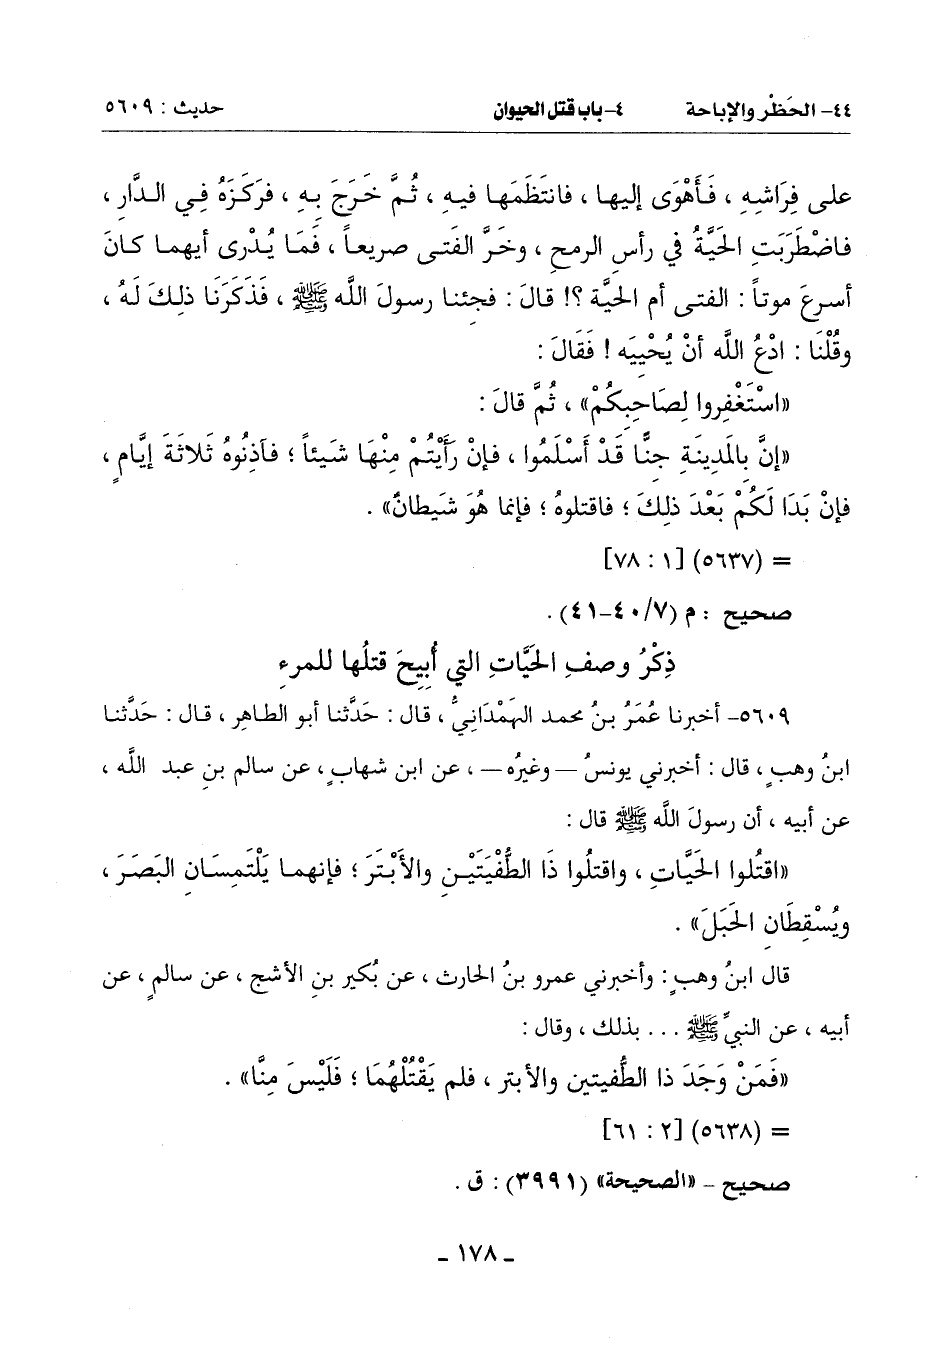 ٤٤- الحَظْر والإباحة ٤- باب قتل الحيوان حديث : ٥٦٠٩
على فِرَاشِهِ ، فَأَهْوَى إليها ، فانتَظَمَها فيه ، ثُمَّ خَرَجَ بِهِ ، فَرَكَزَهُ فِي الدَّار ،
فاضْطَرَبَتِ الحَيَّةُ في رأس الرمح ، وخَرَّ الفَتى صريعاً ، فَمَا يُدْرى أيهما كانَ
أسرعَ موتاً : الفتى أم الحيَّة ؟! قالَ : فجئنا رسولَ اللَّه ﷺ ، فَذَكَرَنَا ذلِكَ لَهُ ،
وقُلْنَا : ادْعُ اللَّه أنْ يُحْيِيَه ! فَقَالَ :
«اسْتَغْفِروا لِصَاحِبِكُمْ» ، ثُمَّ قالَ :
«إنَّ بِالَمدِينَةِ جِنًّا قَدْ أَسْلَمُوا ، فَإنْ رَأَيْتُمْ مِنْهَا شَيئاً ؛ فآذِنُوهُ ثَلاثَةَ إيَّامٍ ،
فإنْ بَدَا لَكُمْ بَعْدَ ذلِكَ ؛ فاقتلوهُ ؛ فإنما هُوَ شَيطانٌ» .
= (٥٦٣٧) [١ : ٧٨]
صحيح : م (٧/ ٤٠-٤١) .
ذِكْرُ وصفِ الحَيَّاتِ التي أُبِيحَ قتلُها للمرءِ
٥٦٠٩- أخبرنا عُمَرُ بنُ محمد الهَمْدَانِيُّ ، قال : حَدَّثنا أبو الطاهِر ، قال : حَدَّثنا
ابنُ وهبٍ ، قال : أخبرني يونسُ — وغيرُه — ، عن ابن شهابٍ ، عن سالم بنِ عبد اللَّه ،
عن أبيه ، أن رسولَ اللَّه ﷺ قال :
«اقتُلوا الحَيَّاتِ ، واقتُلوا ذَا الطُّفْيَتَيْنِ والأَبْتَرَ ؛ فإنهما يَلْتَمِسَانِ البَصَرَ ،
ويُسْقِطَانِ الحَبَلَ» .
قال ابنُ وهبٍ : وأخبرني عمرو بنُ الحارث ، عن بُكير بنِ الأشج ، عن سالمٍ ، عن
أبيه ، عن النبيِّ ﷺ . . . بذلك ، وقال :
«فَمَنْ وَجَدَ ذا الطُّفيتين والأبتر ، فلم يَقْتُلْهُمَا ؛ فَلَيْسَ مِنَّا» .
= (٥٦٣٨) [٢ : ٦١]
صحيح - «الصحيحة» (٣٩٩١) : ق .
- ١٧٨ -